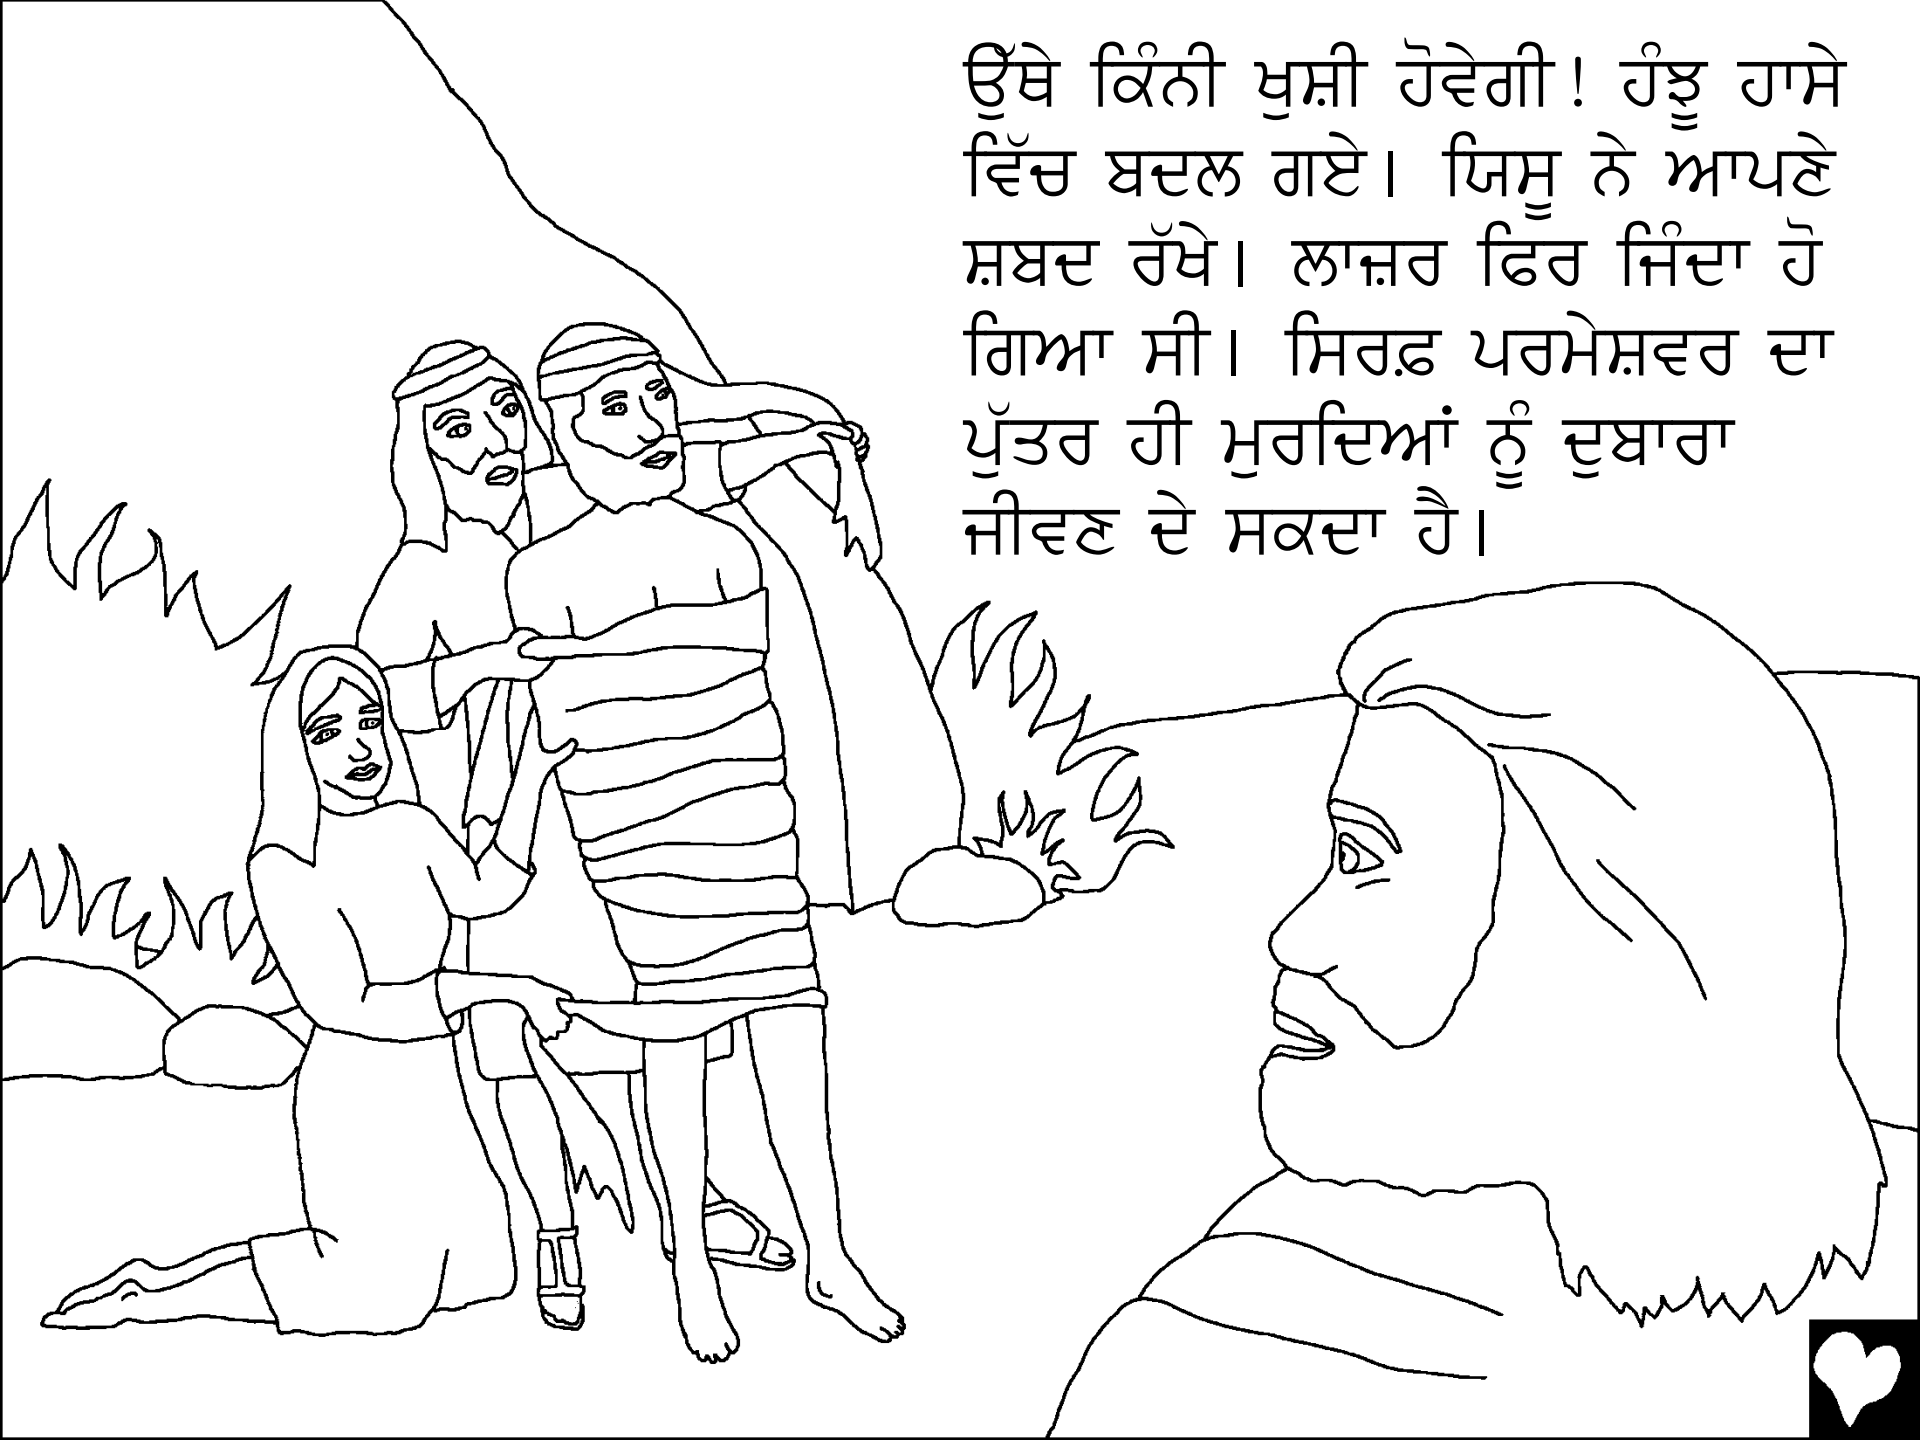 ਉੱਥੇ ਕਿੰਨੀ ਖੁਸ਼ੀ ਹੋਵੇਗੀ! ਹੰਝੂ ਹਾਸੇ
ਵਿੱਚ ਬਦਲ ਗਏ। ਯਿਸੂ ਨੇ ਆਪਣੇ
ਸ਼ਬਦ ਰੱਖੇ। ਲਾਜ਼ਰ ਫਿਰ ਜਿੰਦਾ ਹੋ
ਗਿਆ ਸੀ। ਸਿਰਫ਼ ਪਰਮੇਸ਼ਵਰ ਦਾ
ਪੁੱਤਰ ਹੀ ਮੁਰਦਿਆਂ ਨੂੰ ਦੁਬਾਰਾ
ਜੀਵਣ ਦੇ ਸਕਦਾ ਹੈ।